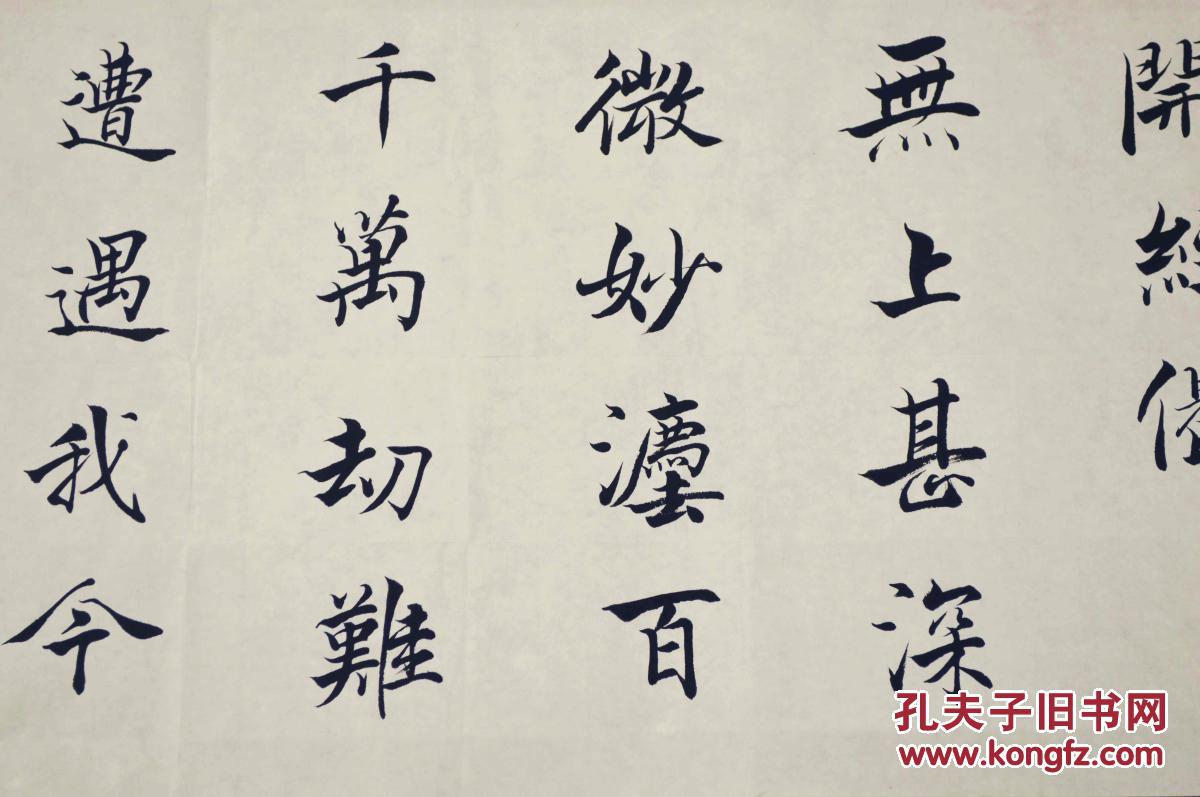 開經偈
無上甚深
微妙灋百
千萬劫難
遭遇我今
孔夫子旧书网
www.kongfz.com